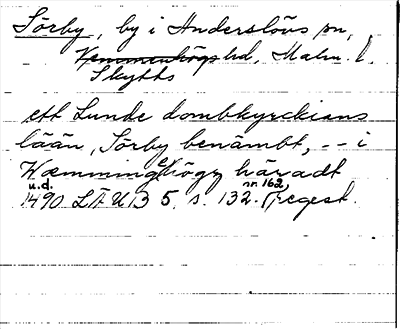 Sörby, by i Anderslövs sn,
Vemmenhögs hd, Malm. l.
Skytts
ett Lunde dombkyrckians
lään, Sörby benämbt, -- i
Wæmminghögx häradt
u.d. nr. 162,
1490 LÄU B 5, s. 132. regest.